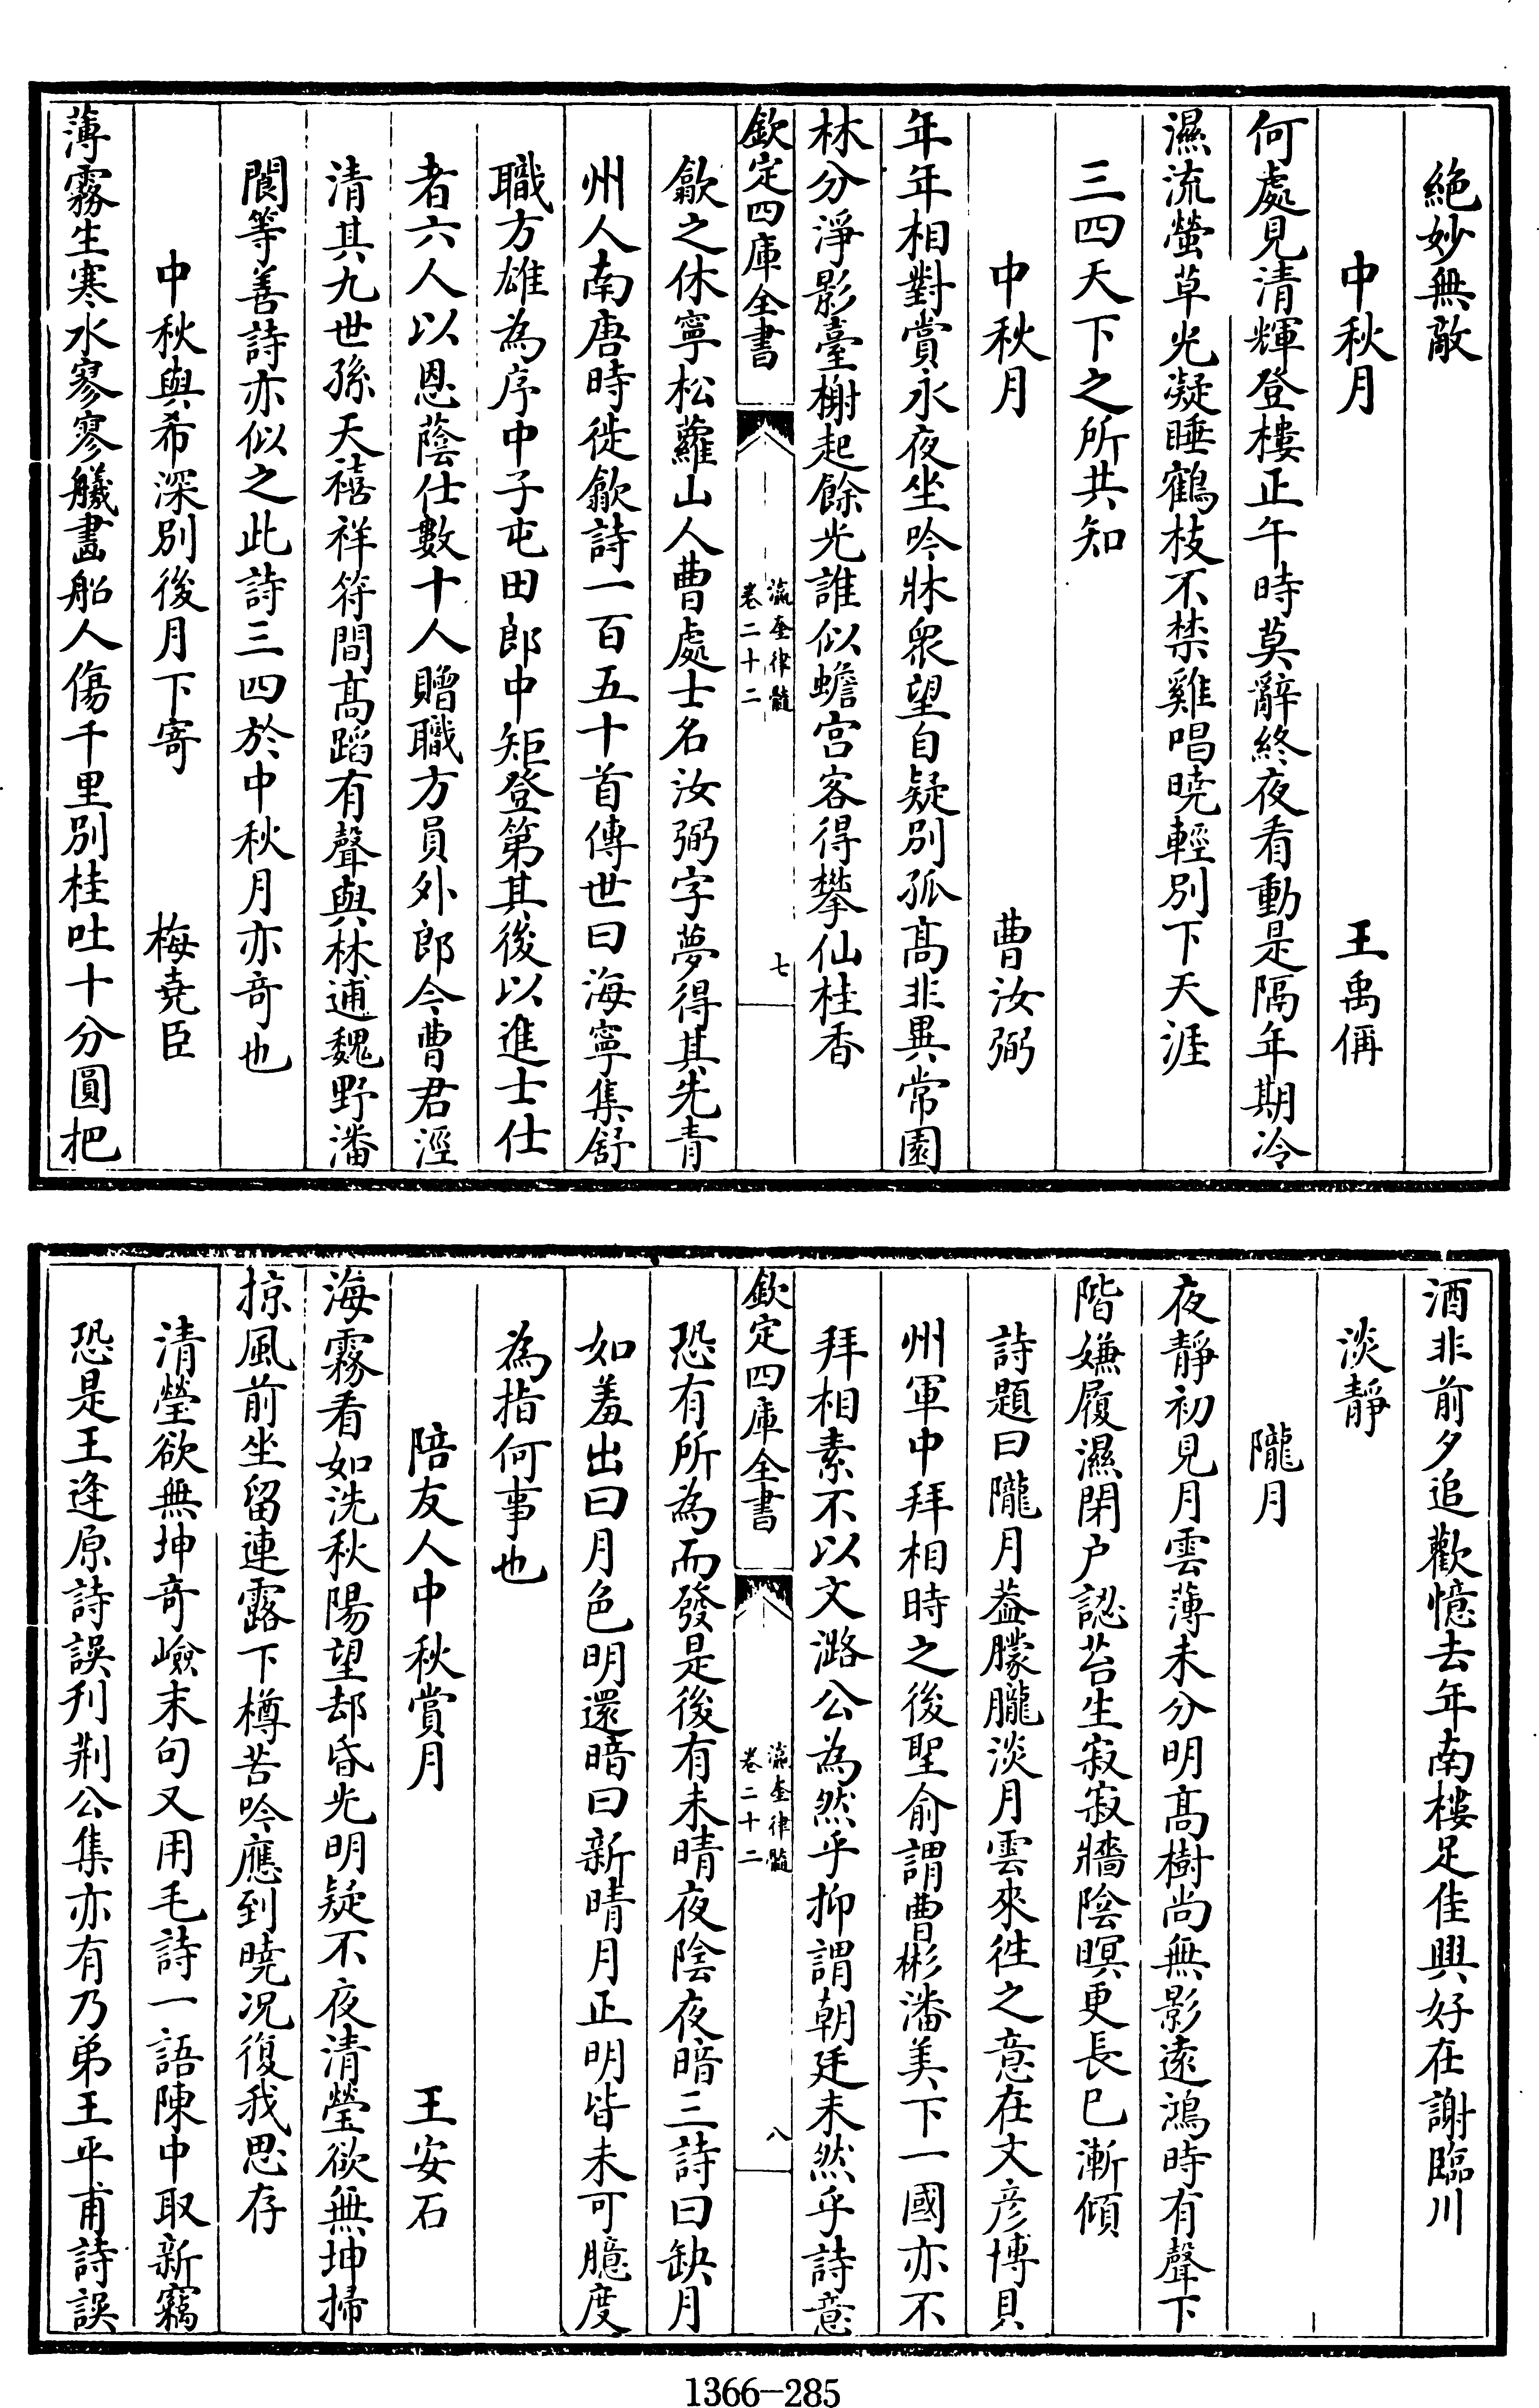 絶妙無敵
中秋月　王禹偁
何處見清輝登樓正午時莫辭終夜看動是隔年期冷
濕流螢草光凝睡鶴枝不禁雞唱曉輕別下天涯
三四天下之所共知
中秋月　曹汝弼
年年相對賞永夜坐吟牀衆望自疑別孤髙非異常園
林分淨影臺榭起餘光誰似蟾宫客得攀仙桂香
欽定四庫全書　瀛奎律髓　卷二十二　七
歙之休寧松蘿山人曹處士名汝弼字夢得其先青
州人南唐時徙歙詩一百五十首傳世曰海寧集舒
職方雄為序中子屯田郎中矩登第其後以進士仕
者六人以恩蔭仕數十人贈職方員外郎今曹君涇
清其九世孫天禧祥符間髙蹈有聲與林逋魏野潘
閬等善詩亦似之此詩三四於中秋月亦竒也
中秋與希深別後月下寄　梅堯臣
薄霧生寒水寥寥艤畵船人傷千里別桂吐十分圓把
酒非前夕追歡憶去年南樓足佳興好在謝臨川
淡靜
隴月
夜靜初見月雲薄未分明髙樹尚無影遠鴻時有聲下
階嫌履濕閉户認苔生寂寂牆陰暝更長已漸傾
詩題曰隴月葢朦朧淡月雲來徃之意在文彦博貝
州軍中拜相時之後聖俞謂曹彬潘美下一國亦不
拜相素不以文潞公為然乎抑謂朝廷未然乎詩意
欽定四庫全書　瀛奎律髓　卷二十二　八
恐有所為而發是後有未晴夜陰夜暗三詩曰缺月
如羞出曰月色明還暗曰新晴月正明皆未可臆度
為指何事也
陪友人中秋賞月　王安石
海霧看如洗秋陽望却昏光明疑不夜清瑩欲無坤掃
掠風前坐留連露下樽苦吟應到曉况復我思存
清瑩欲無坤竒嶮末句又用毛詩一語陳中取新竊
恐是王逢原詩誤刋荆公集亦有乃弟王平甫詩誤
1366—285